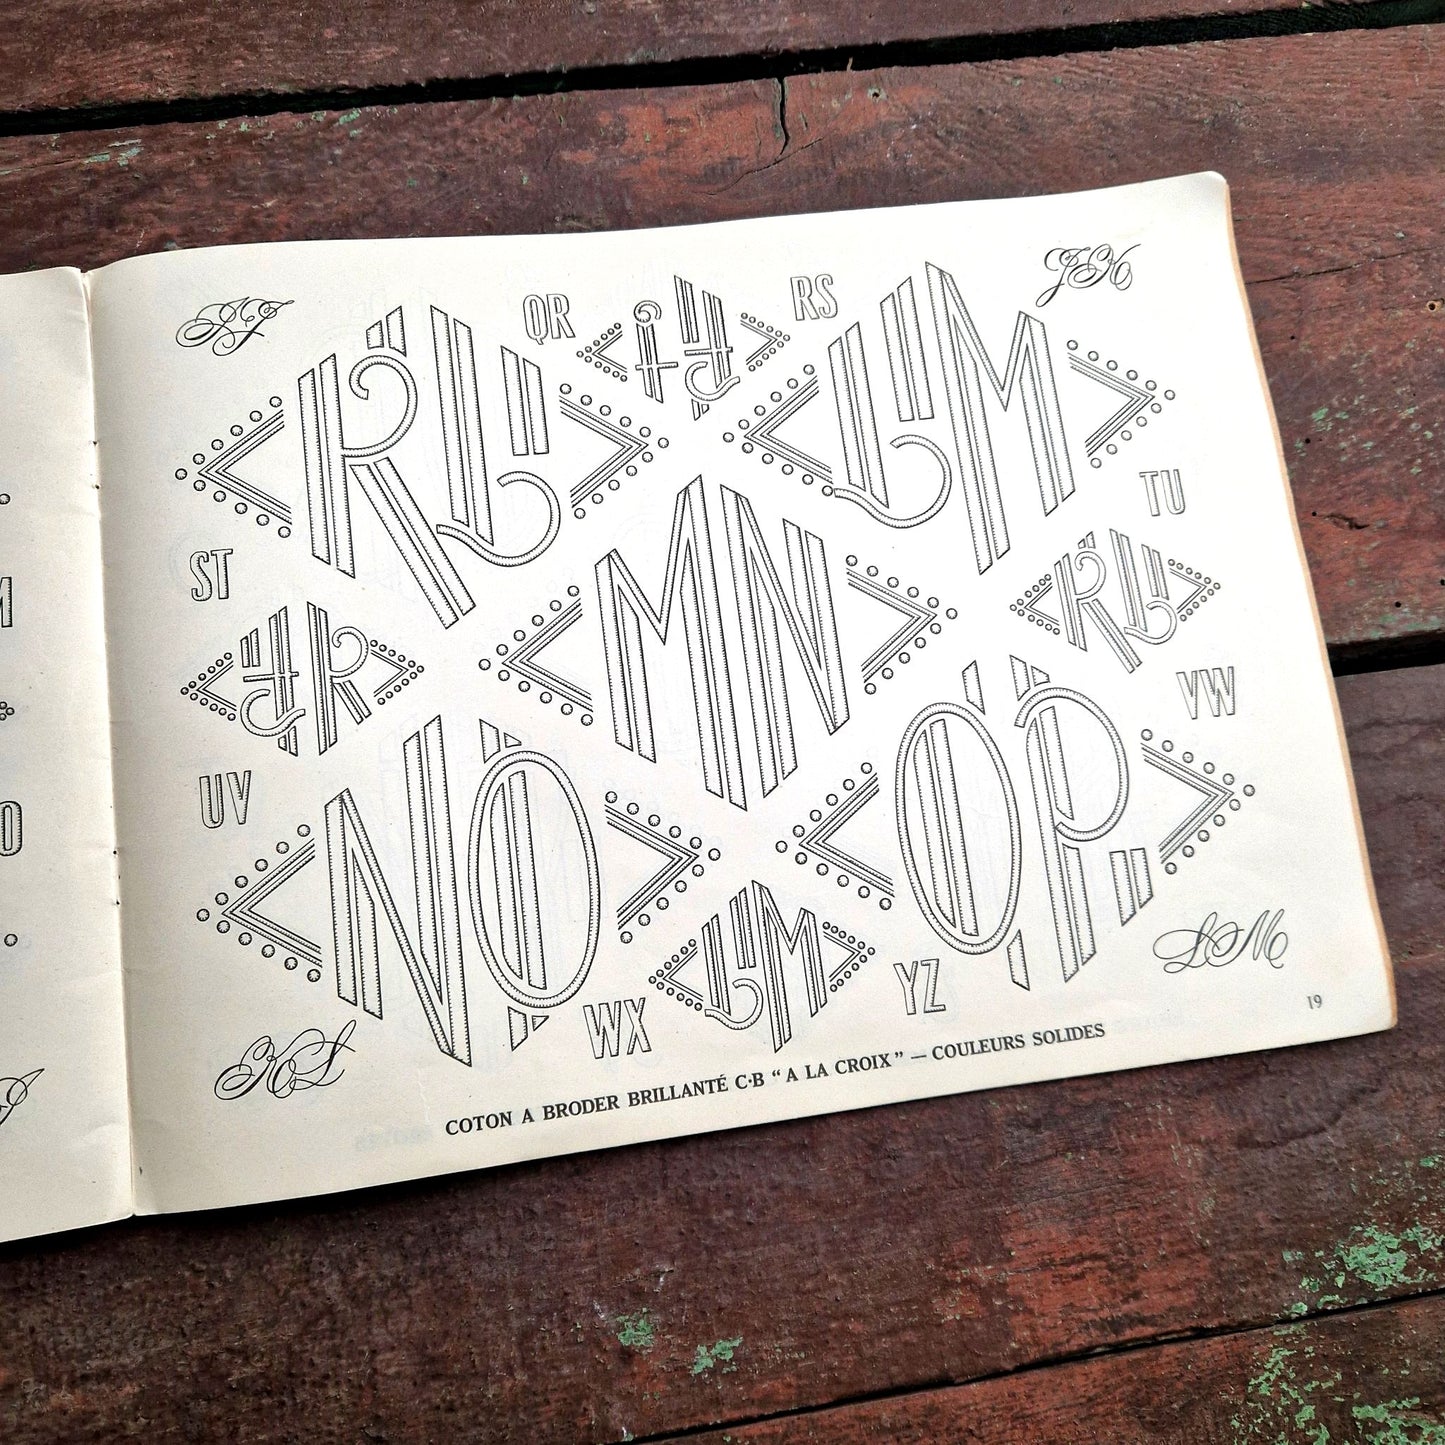 IJ
QR
IJ
RS
JK
KL
LM
TU
ST
MN
KL
JK
VW
UV
NO
OP
LM
YZ
WX
LM
KL
19
COTON A BRODER BRILLANTÉ C·B “ A LA CROIX ” — COULEURS SOLIDES